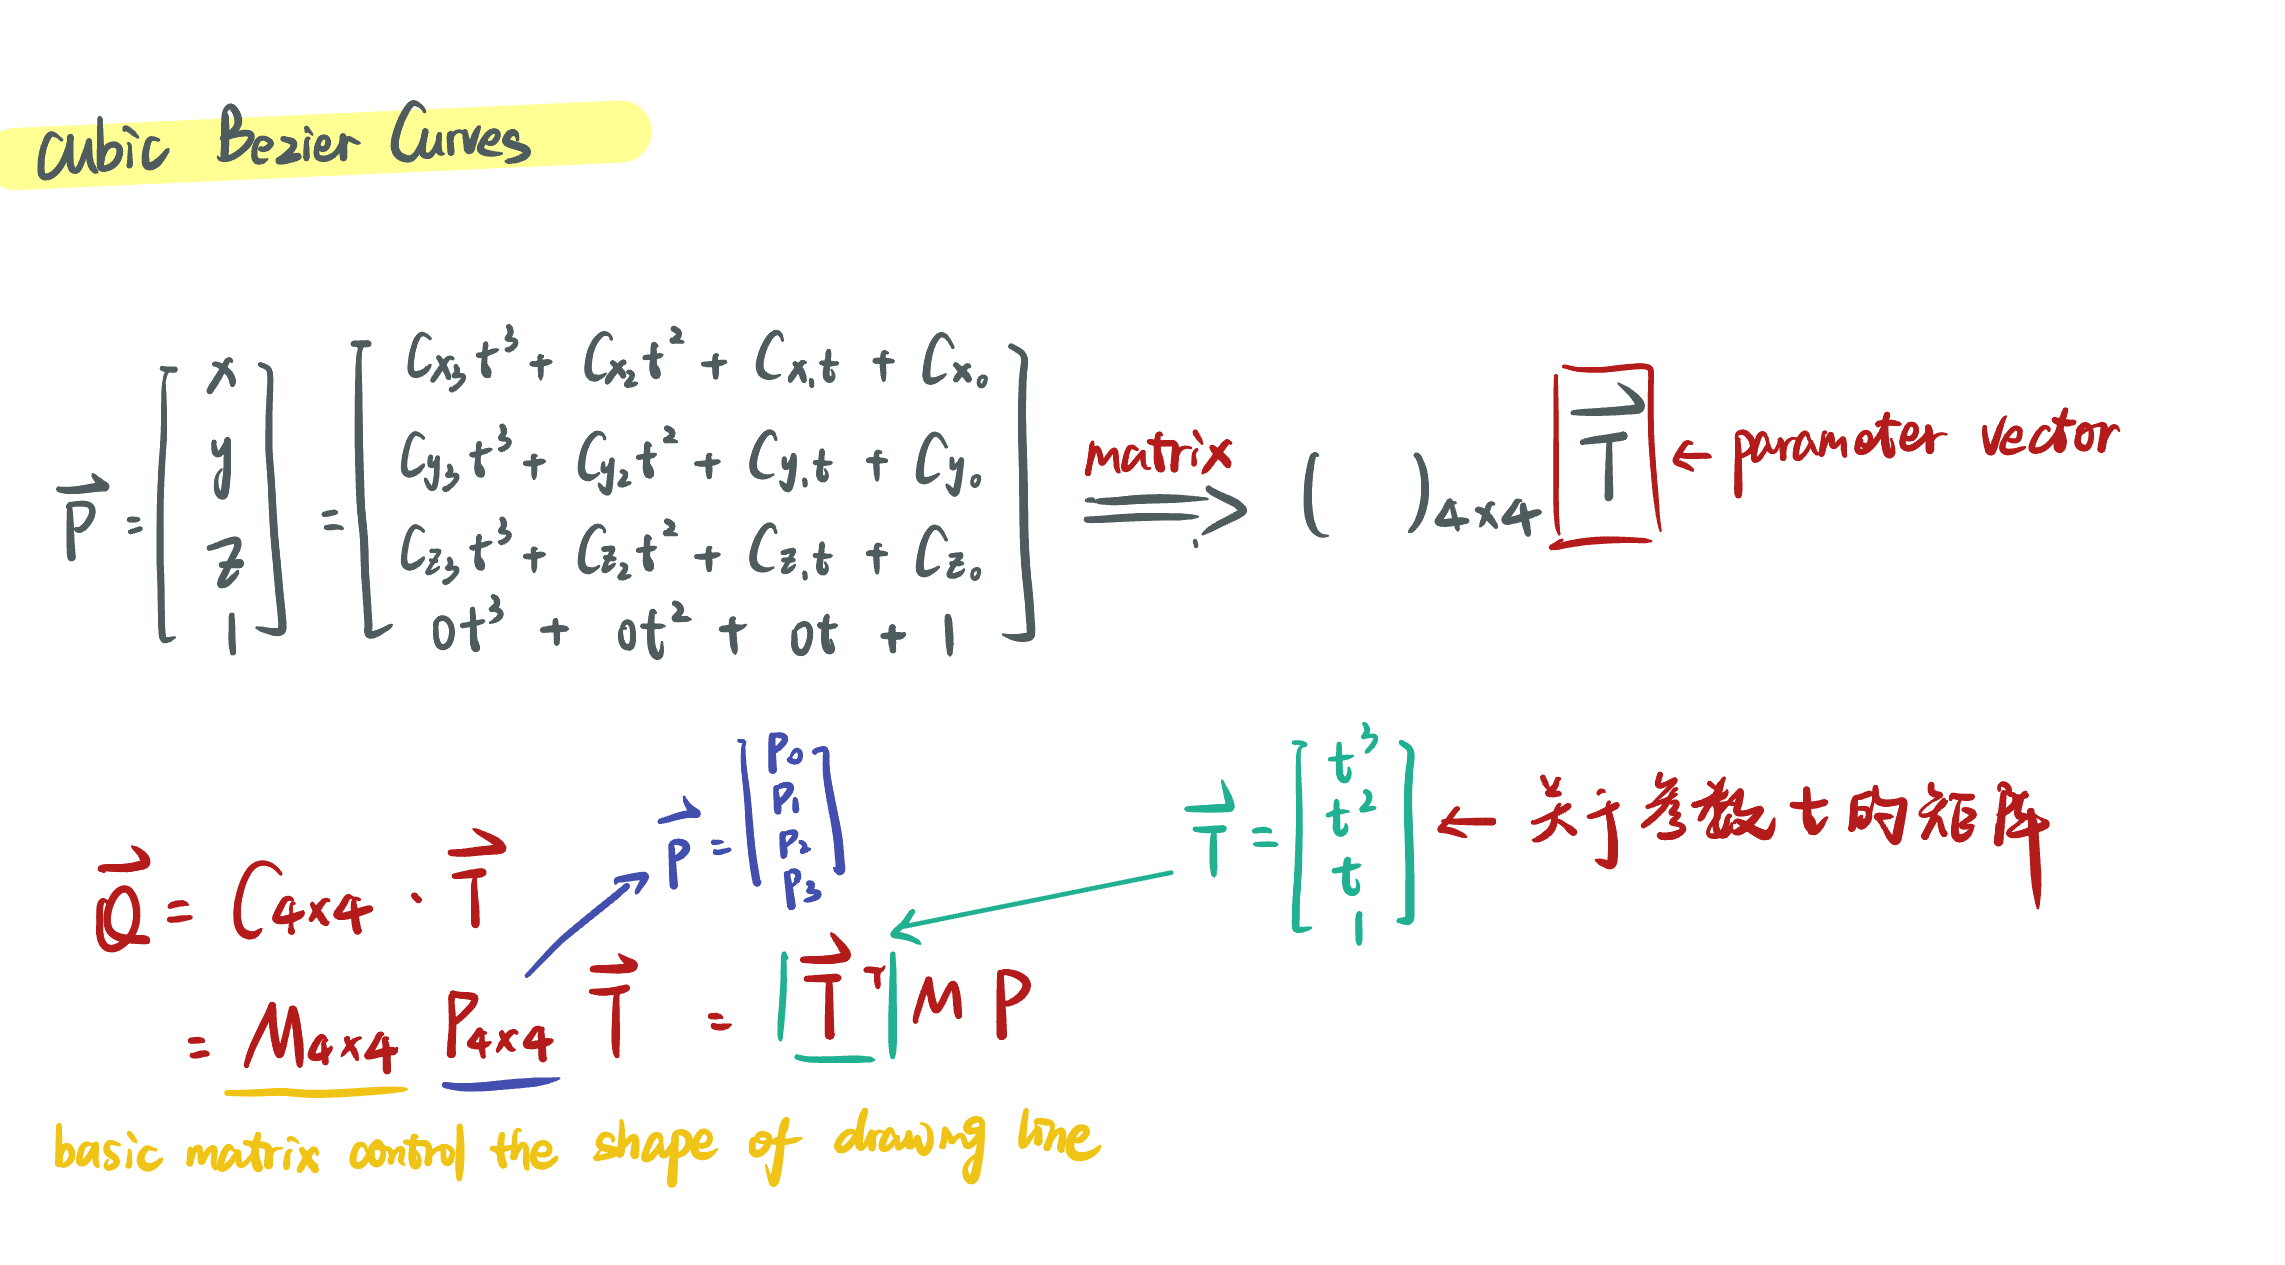 cubic Bezier Curves
P⃗ = [x y z 1] = [Cx₃t³ + Cx₂t² + Cx₁t + Cx₀
Cy₃t³ + Cy₂t² + Cy₁t + Cy₀
Cz₃t³ + Cz₂t² + Cz₁t + Cz₀
0t³ + 0t² + 0t + 1]
matrix ⟹ ( )₄ₓ₄ T⃗ ← parameter vector
P⃗ = [P₀ P₁ P₂ P₃]
T⃗ = [t³ t² t 1] ← 关于参数t的矩阵
Q⃗ = C₄ₓ₄ · T⃗
= M₄ₓ₄ P₄ₓ₄ T⃗ = |T⃗ᵀ| M P
basic matrix control the shape of drawing line